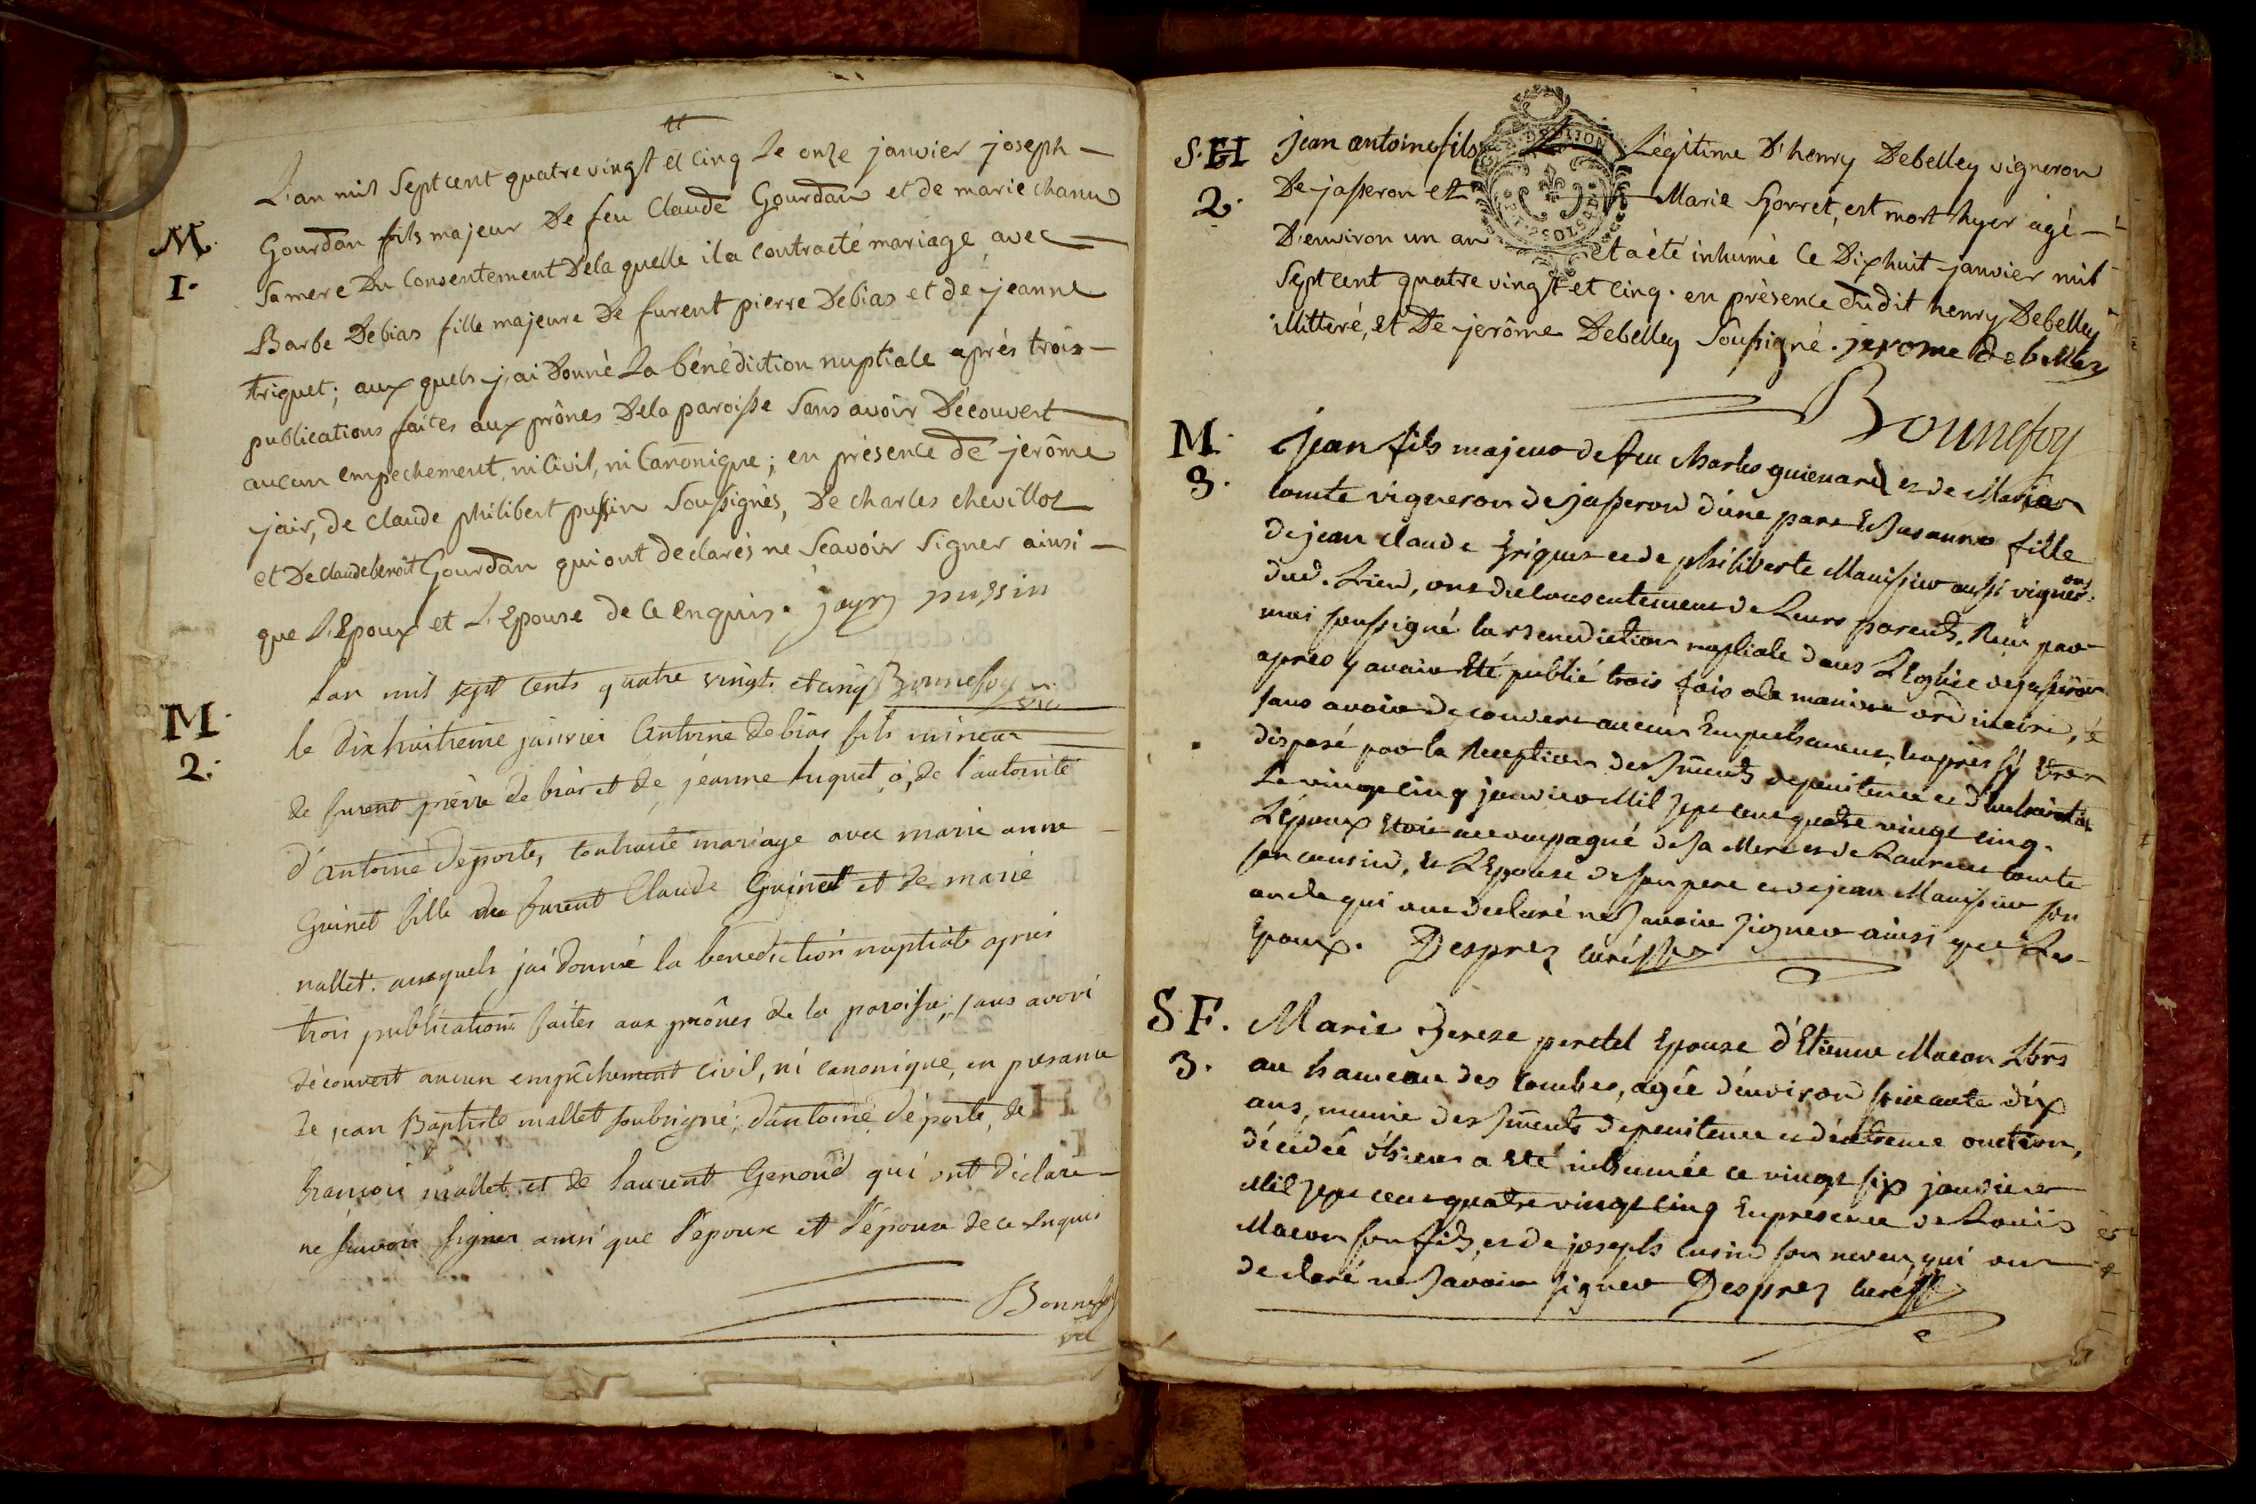 L'an mil Sept cent quatre vingt et cinq Le onze janvier joseph
M. Gourdan fils majeur De feu Claude Gourdan et de marie chanu
1. Sa mere Du Consentement De la quelle il a contracté mariage avec
Barbe Debias fille majeure De furent pierre Debias et de jeanne
triquet; aux quels j'ai Donné La bénédiction nuptiale après trois
publications faites aux prônes De la paroisse Sans avoir Découvert
aucun empechement ni Civil, ni Canonique; en présence de jerôme
jair, de claude philibert pussin Soussignés, De charles chevillot
et De claude benoit Gourdan qui ont declarés ne Scavoir Signer ainsi
que L'Epoux et L'Epouse de ce enquis. jayr pussin
Bonnefoy vic.
M. Lan mil sept cents quatre vingts et cinq
2. le dix huitieme janvier Antoine debias fils mineur
de furent pierre de bias et de jeanne triquet, a, de l'autorité
d'Antoine Deporte, contracté mariage avec marie anne
Guinet fille de furent Claude Guinet et de marie
mallet. auxquels j'ai donné la benediction nuptiale apres
trois publications faites aux prônes de la paroisse, sans avoir
découvert aucun empêchement civil, ni canonique, en presance
de jean Baptiste mallet soubsigné, d'antoine déporte, de
françois mallet et de laurent Genoud qui ont déclaré
ne scavoir signer ainsi que l'époux et l'épouse de ce enquis
Bonnefoy
vic
S. H jean antoine fils Légitime D'henry Debelley vigneron
2. De jasseron et Marie Gorret, est mort hyer agé
D'environ un an et a été inhumé Ce Dixhuit janvier mil
Sept cent quatre vingt et cinq. en présence dudit henry Debelley
illitteré, et De jerôme Debelley Soussigné. jerome debelley
Bonnefoy
M. Jean fils majeur de feu Charles guienard et de Maria
3. comte vigneron de jasseron d'une part Et Susanne fille
de jean claude triquet et de philiberte Manissier aussi vigneron
dud. Lieu, ont du consentement de Leurs parents, Reçu par
moi soussigné la Benediction nuptiale dans L'Eglise de jasseron
apres y avoir Eté publié trois fois a la maniere ordinaire, &
sans avoir decouvert aucun Empechement, et apres sy Etre
disposé par la Reception des Sments de penitence et d'eucharistie
Le vingt cinq janvier Mil sept cent quatre vingt cinq.
L'époux Etoit accompagné de sa Mere et de Laurent comte
son cousin, Et L'Epouse de son pere et de jean Manissier son
oncle qui ont declaré ne Savoir signer ainsi que Les
Epoux. Desprez curé
S F. Marie therese peretel Epouse d'Etienne Macon Lbrs
3. au hameau des combes, agée d'environ soixante dix
ans, munie des Sments de penitence et d'extreme onction,
décédée hier a Eté inhumée ce vingt six janvier
Mil sept cent quatre vingt cinq En presence de Louis
Macon son fils, et de joseph cusin son neveu, qui ont
declaré ne Savoir signer Desprez curé